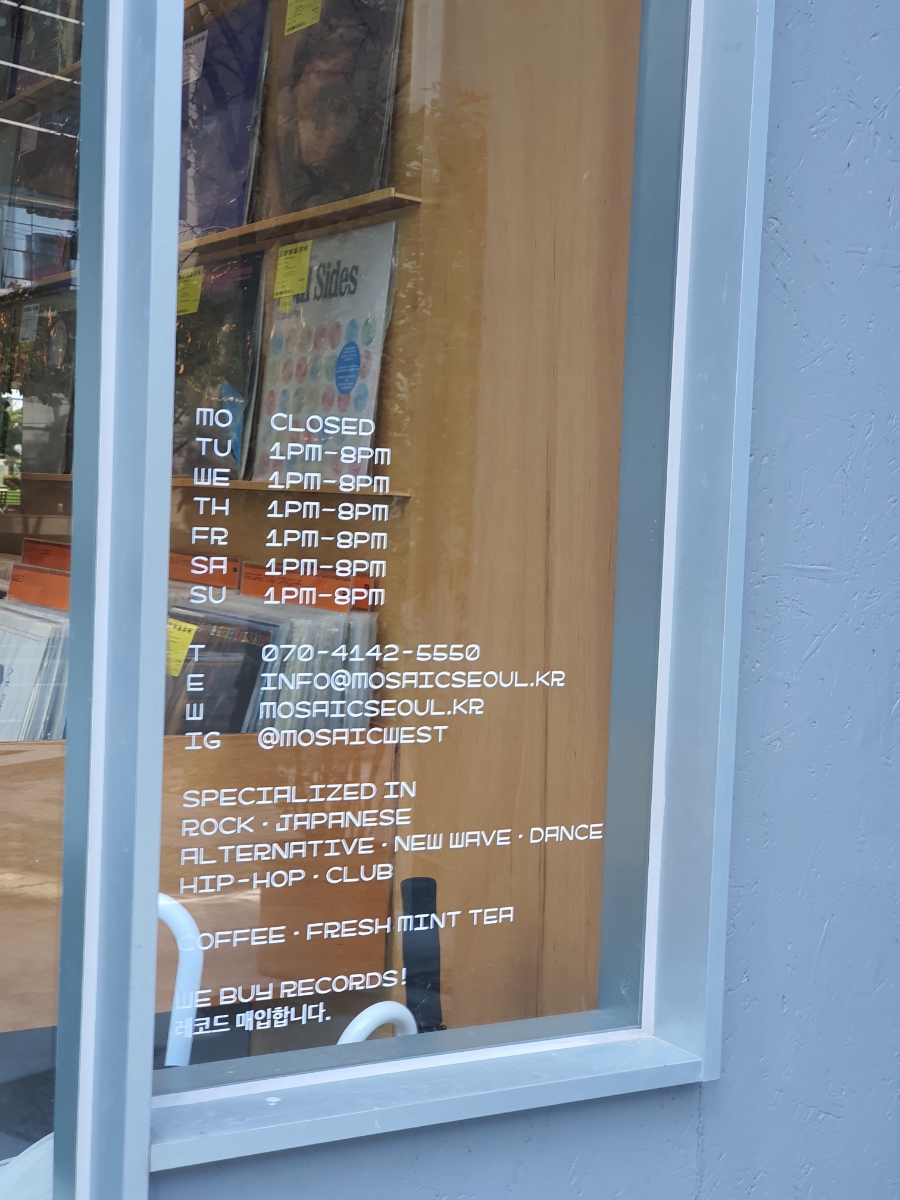 Sides
MO CLOSED
TU 1PM-8PM
WE 1PM-8PM
TH 1PM-8PM
FR 1PM-8PM
SA 1PM-8PM
SU 1PM-8PM
T 070-4142-5550
E INFO@MOSAICSEOUL.KR
W MOSAICSEOUL.KR
IG @MOSAICWEST
SPECIALIZED IN
ROCK · JAPANESE
ALTERNATIVE · NEW WAVE · DANCE
HIP-HOP · CLUB
COFFEE · FRESH MINT TEA
WE BUY RECORDS!
레코드 매입합니다.